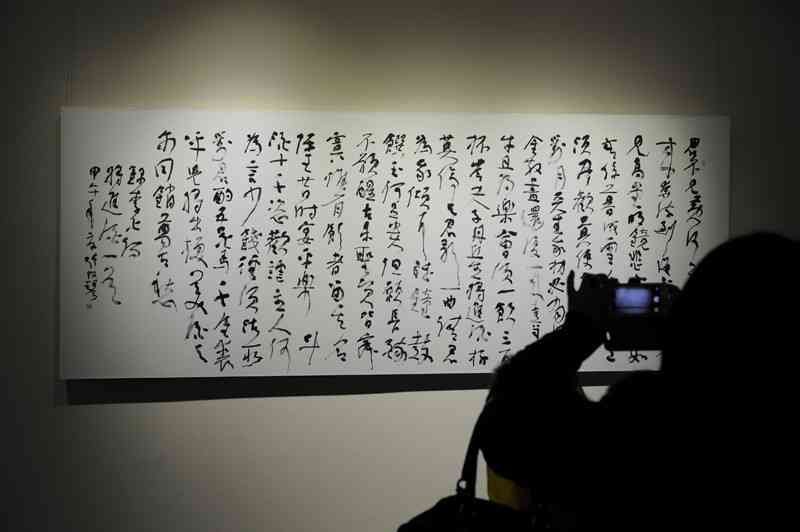 君不見黃河
奔流到海
見高堂明鏡悲 如
青絲暮成雪人
須盡歡莫使
對月天生我材必有用
金散盡還復來烹羊
牛且為樂會須一飲三百
杯岑夫子丹丘生將進酒杯
莫停與君歌一曲請君
為我傾耳聽鐘鼓
饌玉何足貴但願長醉
不願醒古來聖賢皆寂
寞惟有飲者留其名
陳王昔時宴平樂斗
酒十千恣歡謔主人何
為言少錢徑須沽取
對君酌五花馬千金裘
呼兒將出換美酒與
爾同銷萬古愁
錄李白詩
將進酒一首
甲午年